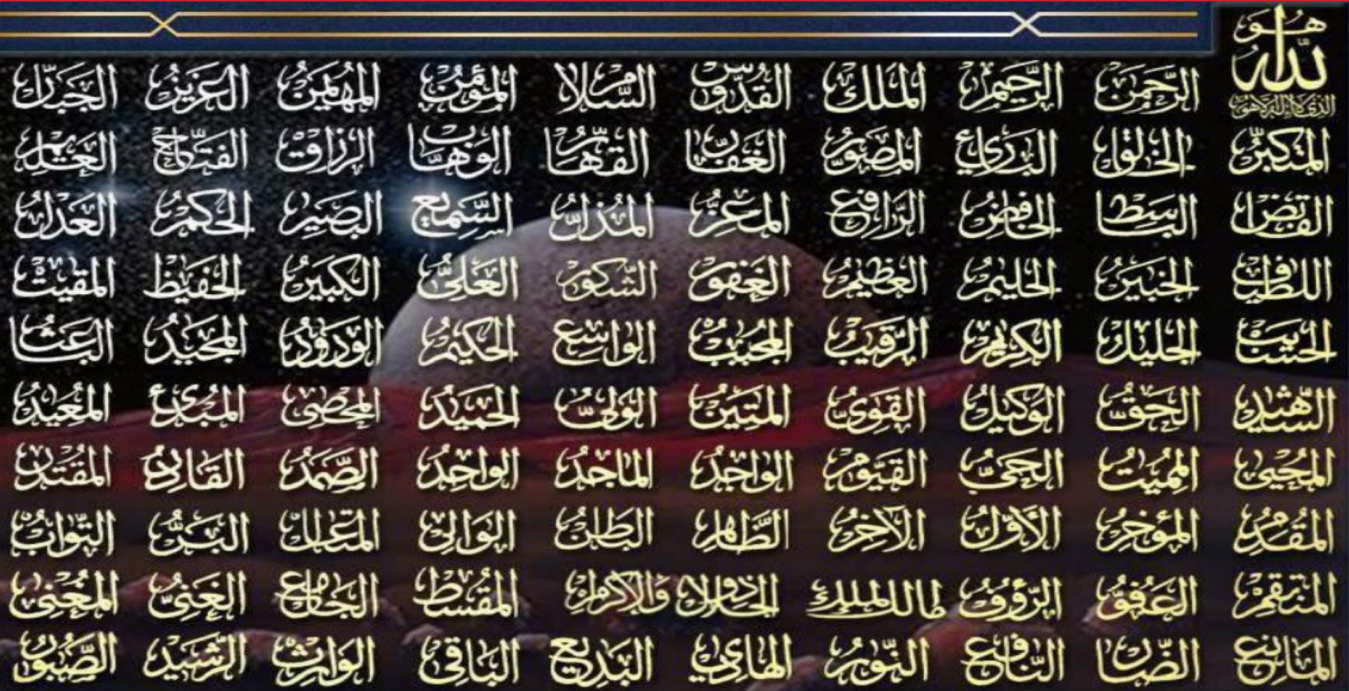 هو
الله
الذي لا إله إلا هو
الرحمن الرحيم الملك القدوس السلام المؤمن المهيمن العزيز الجبار
المتكبر الخالق البارئ المصور الغفار القهار الوهاب الرزاق الفتاح العليم
القابض الباسط الخافض الرافع المعز المذل السميع البصير الحكم العدل
اللطيف الخبير الحليم العظيم الغفور الشكور العلي الكبير الحفيظ المقيت
الحسيب الجليل الكريم الرقيب المجيب الواسع الحكيم الودود المجيد الباعث
الشهيد الحق الوكيل القوي المتين الولي الحميد المحصي المبدئ المعيد
المحيي المميت الحي القيوم الواجد الماجد الواحد الصمد القادر المقتدر
المقدم المؤخر الأول الآخر الظاهر الباطن الوالي المتعال البر التواب
المنتقم العفو الرؤوف مالك الملك ذو الجلال والإكرام المقسط الجامع الغني المغني
المانع الضار النافع النور الهادي البديع الباقي الوارث الرشيد الصبور